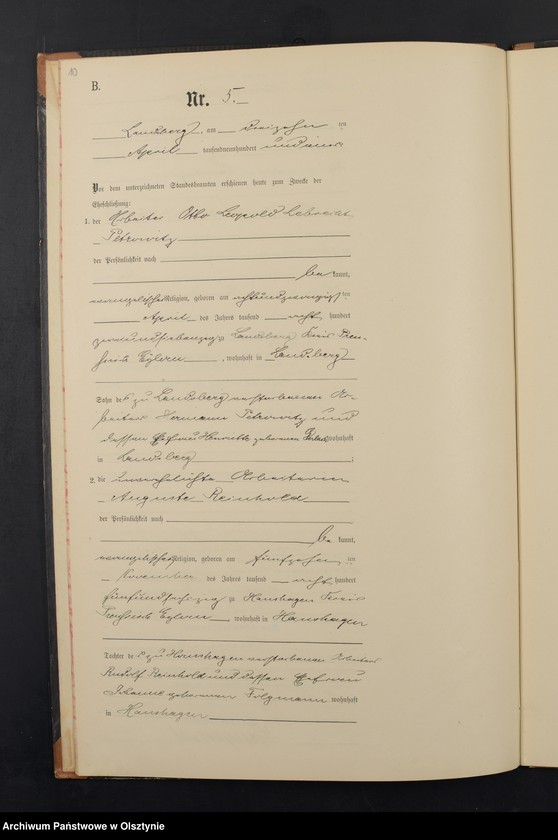 10
B.
Nr. 5.
Landsberg, am dreizehnten
April tausendneunhundert und eins
Vor dem unterzeichneten Standesbeamten erschienen heute zum Zweck der
Eheschließung:
1. der Arbeiter Otto Leopold Lebrecht
Petrowitz
der Persönlichkeit nach
bekannt,
evangelischer Religion, geboren am achtundzwanzigsten
April des Jahres tausend acht hundert
zweiundsiebenzig zu Landsberg Kreis Preu-
ßisch Eylau, wohnhaft in Landsberg
Sohn des zu Landsberg verstorbenen Ar-
beiters Hermann Petrowitz und
dessen Ehefrau Henriette geborenen wohnhaft
in Landsberg
2. die unverehelichte Arbeiterin
Auguste Reinhold
der Persönlichkeit nach
bekannt,
evangelischer Religion, geboren am fünfzehnten
November des Jahres tausend acht hundert
fünfundsechzig zu Hanshagen Kreis
Preußisch Eylau, wohnhaft in Hanshagen
Tochter des zu Hanshagen verstorbenen Arbeiters
Rudolf Reinhold und dessen Ehefrau
Johanne geborenen Tolgmann wohnhaft
in Hanshagen
Archiwum Państwowe w Olsztynie